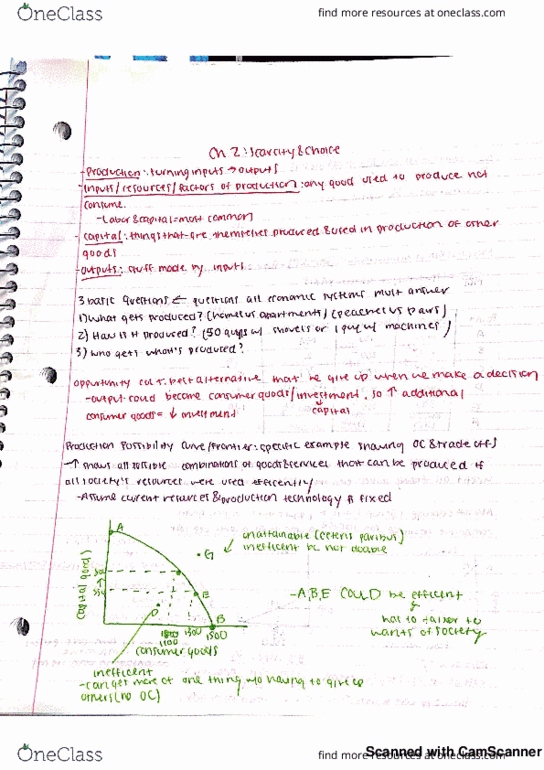 OneClass
find more resources at oneclass.com
Ch 2: Scarcity & Choice
-Production: turning inputs → outputs
-Inputs/resources/factors of production: any good used to produce not
consume.
-Labor & capital = most common
-capital: things that are themselves produced & used in production of other
goods
-outputs: stuff made by inputs
3 basic questions ← questions all economic systems must answer
1) What gets produced? (homes vs apartments) (peaches vs pairs)
2) How is it produced? (50 guys w/ shovels or 1 guy w/ machines)
3) Who gets what's produced?
opportunity cost: best alternative that we give up when we make a decision
-output could become consumer goods/investment, so ↑ additional
consumer goods = ↓ investment
capital
Production Possibility Curve/Frontier: specific example showing OC & trade offs
→ shows all possible combinations of goods & services that can be produced if
all society's resources were used efficiently
-Assume current resources & production technology is fixed
A
G
unattainable (ceteris paribus)
inefficient bc not doable
capital goods
E
D
B
1300
1500
1100
consumer goods
-A,B,E COULD be efficient
has to tailor to
wants of society
inefficient
-can get more of one thing w/o having to give up
others (no OC)
OneClass
find more resources at oneclass.com
Scanned with CamScanner